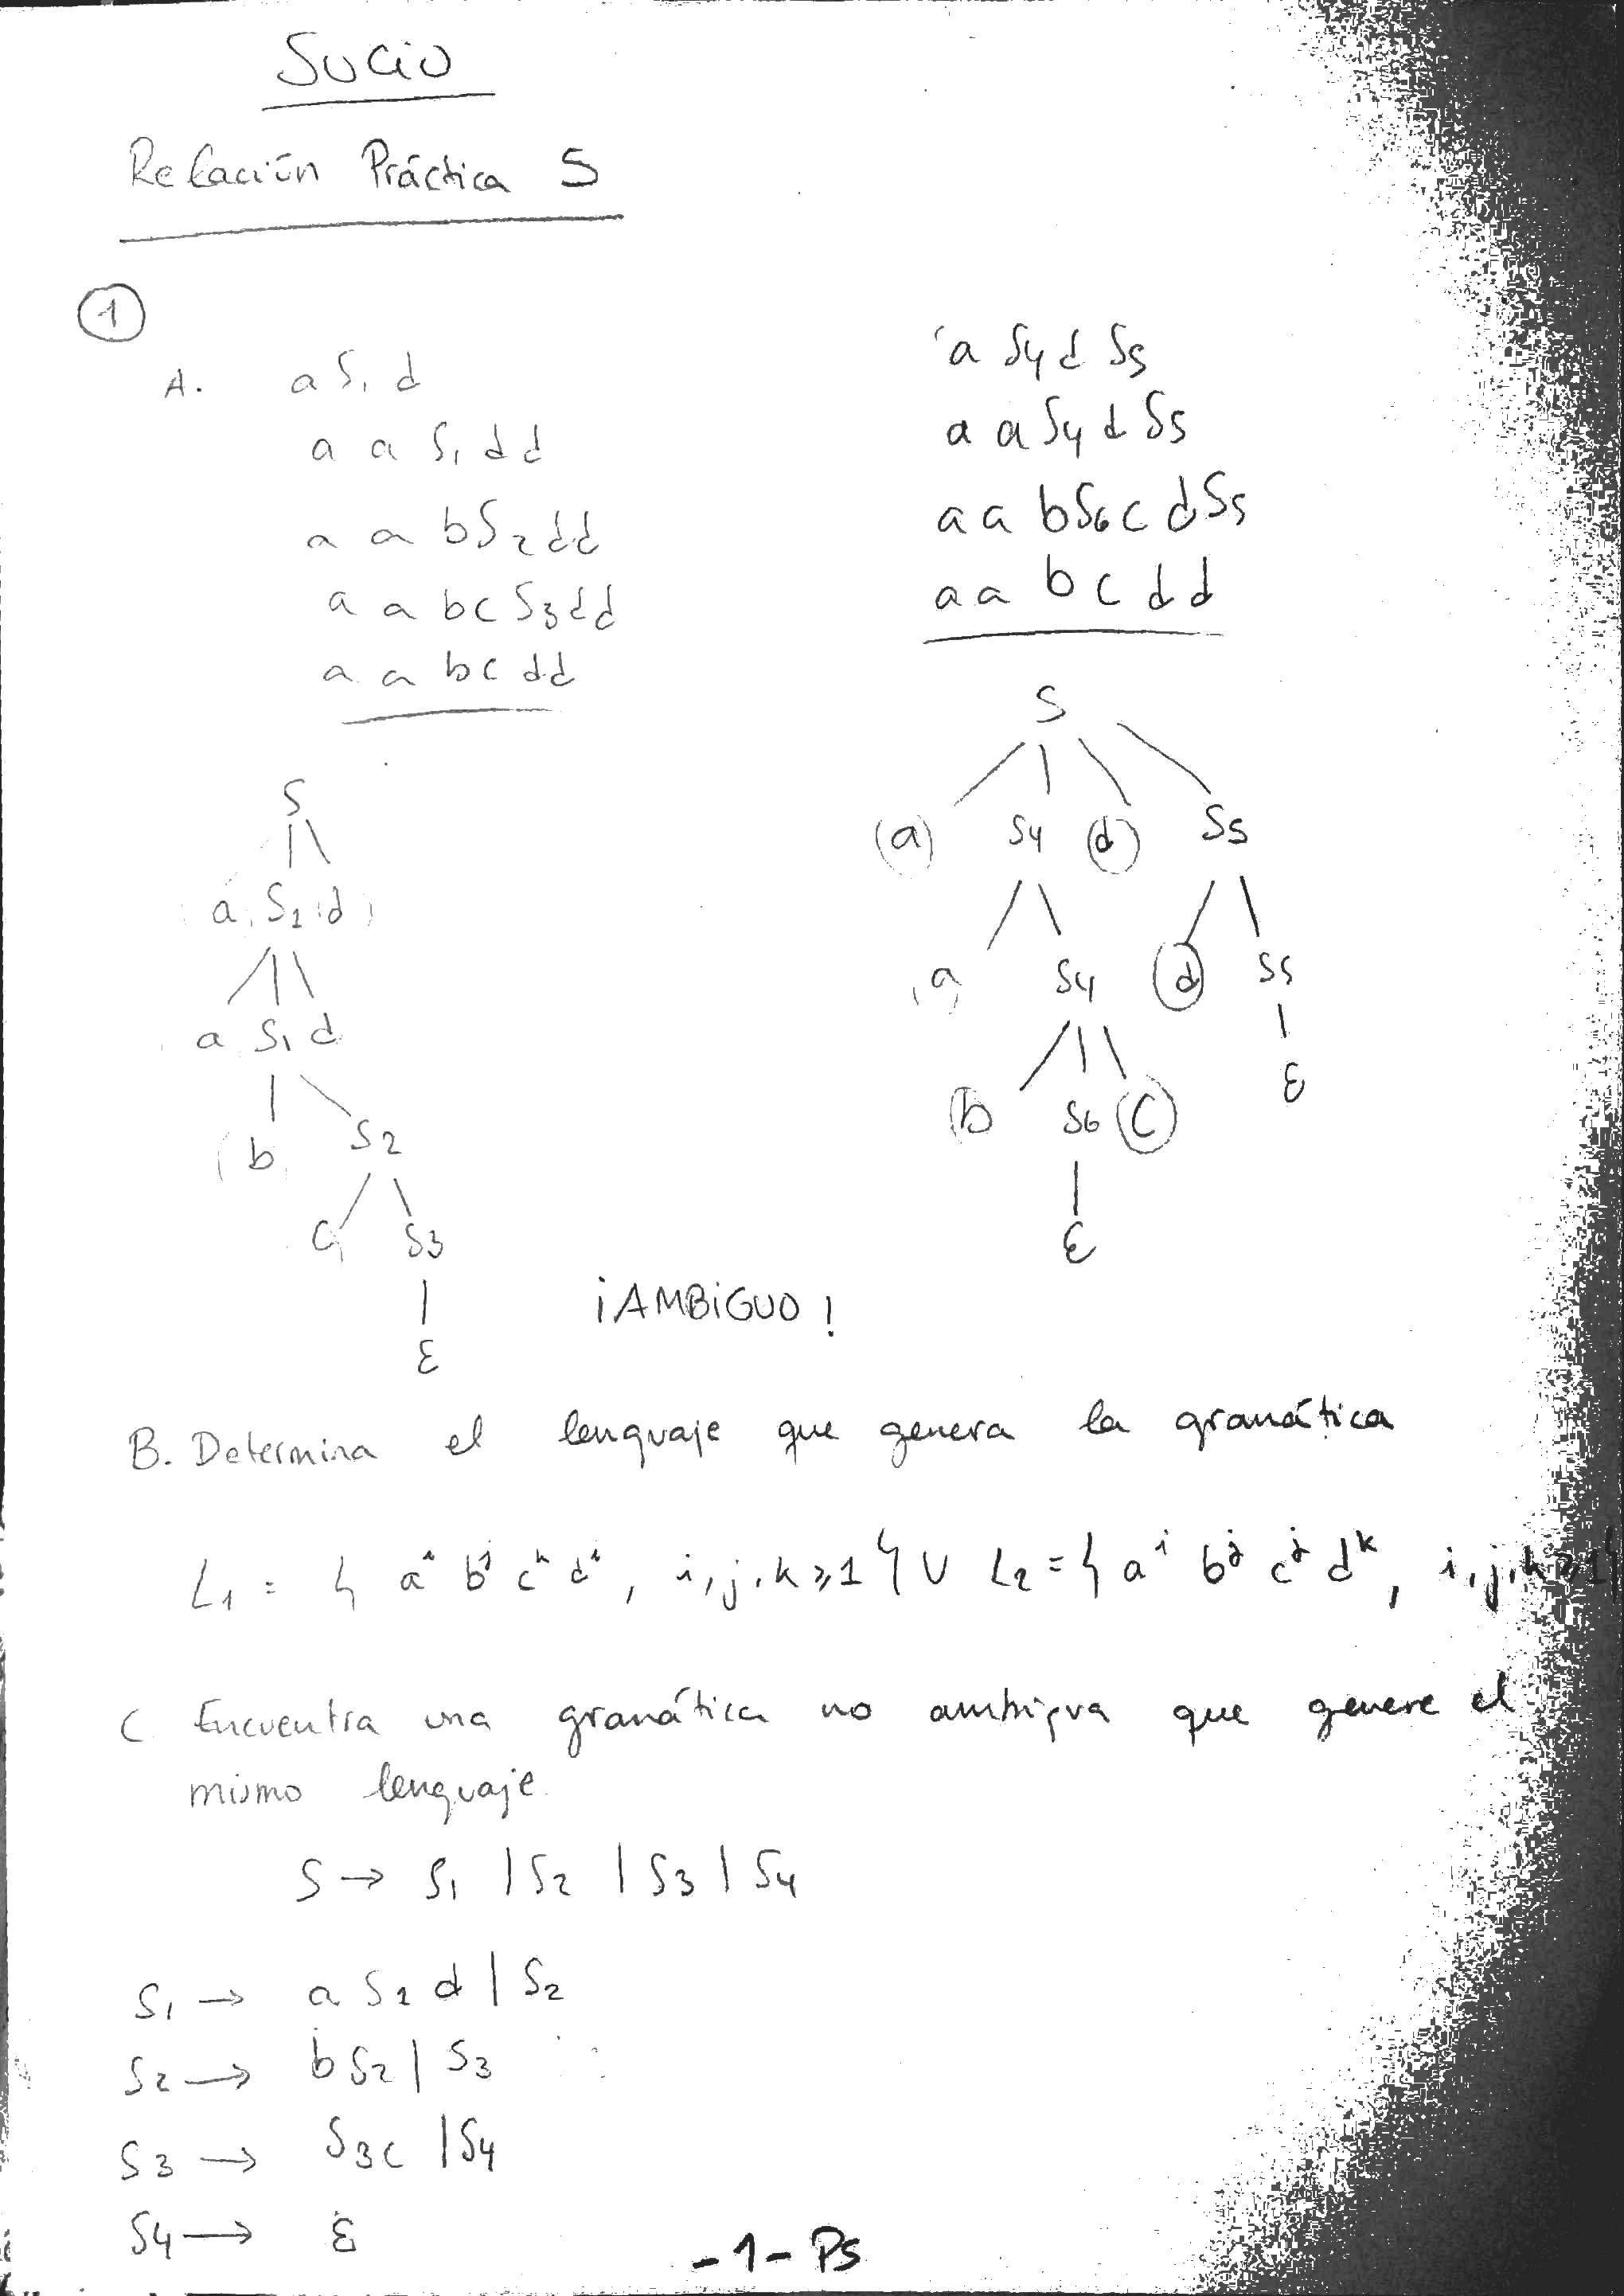 Sucio
Relación Práctica 5
1
A. a S₁ d
a a S₁ d d
a a b S₂ d d
a a b c S₃ d d
a a b c d d
a S₄ d S₅
a a S₄ d S₅
a a b S₆ c d S₅
a a b c d d
S
a S₁ d
a S₁ d
b S₂
c S₃
ε
S
a S₄ d S₅
a S₄ d S₅
b S₆ c ε
ε
¡AMBiGUO!
B. Determina el lenguaje que genera la gramática
L₁ = { aⁱ bʲ cᵏ dⁱ, i,j,k ≥ 1 } ∪ L₂ = { aⁱ bʲ cʲ dᵏ, i,j,k ≥ 1 }
C Encuentra una gramática no ambigua que genere el
mismo lenguaje.
S → S₁ | S₂ | S₃ | S₄
S₁ → a S₁ d | S₂
S₂ → b S₂ | S₃
S₃ → S₃ c | S₄
S₄ → ε
-1- P5